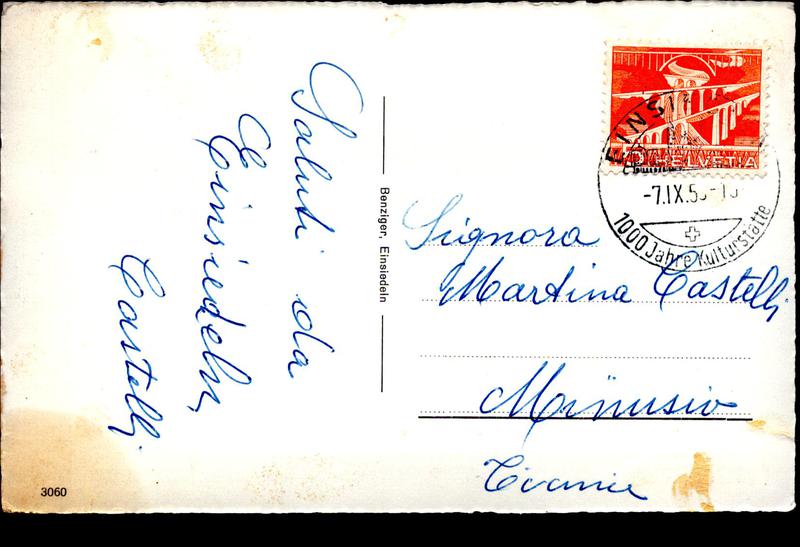 Saluti da
Einsiedeln,
Castelli
Benziger, Einsiedeln
3060
5 HELVETIA
EINSI
-7.IX.5
1000 Jahre Kulturstätte
Signora
Martina Castelli
Minusio